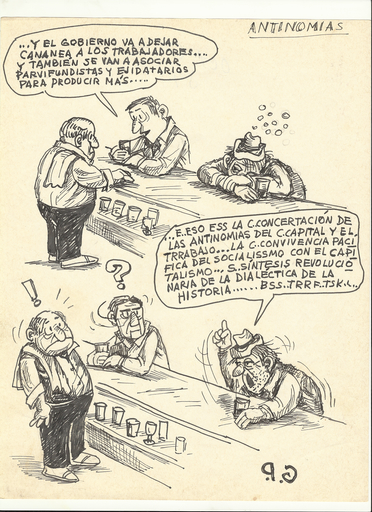 ANTINOMIAS
...Y EL GOBIERNO VA A DEJAR
CANANEA A LOS TRABAJADORES....
Y TAMBIEN SE VAN A ASOCIAR
PARVIFUNDISTAS Y EJIDATARIOS
PARA PRODUCIR MAS.....
...E..ESO ESS LA C.CONCERTACIÓN DE
LAS ANTINOMIAS DEL C.CAPITAL Y EL
TRRABAJO...LA C.CONVIVENCIA PACI
FICA DEL SOCIALISSMO CON EL CAPI
TALISMO... S.SÍNTESIS REVOLUCIO
NARIA DE LA DIALECTICA DE LA
HISTORIA...... BSS.TRRF.TSK...
?
!